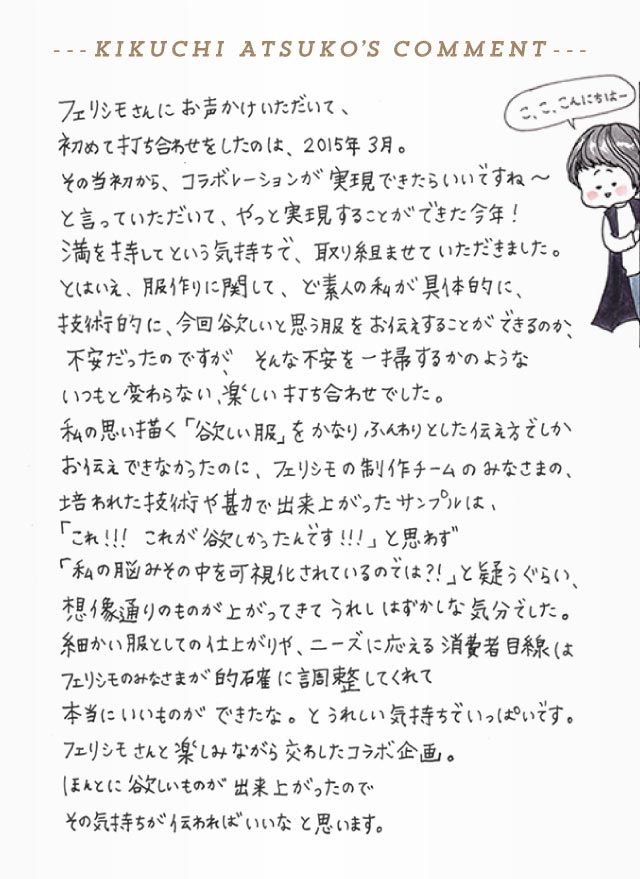 ---KIKUCHI ATSUKO'S COMMENT---
こ、こ、こんにちはー
フェリシモさんに お声かけいただいて、
初めて打ち合わせをしたのは、2015年3月。
その当初から、コラボレーションが実現できたらいいですね〜
と言っていただいて、やっと実現することができた今年!
満を持してという気持ちで、取り組ませていただきました。
とはいえ、服作りに関して、ど素人の私が具体的に、
技術的に、今回欲しいと思う服をお伝えすることができるのか、
不安だったのですが、そんな不安を一掃するかのような
いつもと変わらない、楽しい打ち合わせでした。
私の思い描く「欲しい服」をかなりふんわりとした伝え方でしか
お伝えできなかったのに、フェリシモの制作チームのみなさまの、
培われた技術や甚力で出来上がったサンプルは、
「これ!!! これが欲しかったんです!!!」と思わず
「私の脳みその中を可視化されているのでは?!」と疑うぐらい、
想像通りのものが上がってきてうれしはずかしな気分でした。
細かい服としての仕上がりや、ニーズに応える消費者目線は
フェリシモのみなさまが的確に調整してくれて
本当にいいものができたな。とうれしい気持ちでいっぱいです。
フェリシモさんと楽しみながら交わしたコラボ企画。
ほんとに欲しいものが出来上がったので
その気持ちが伝わればいいなと思います。